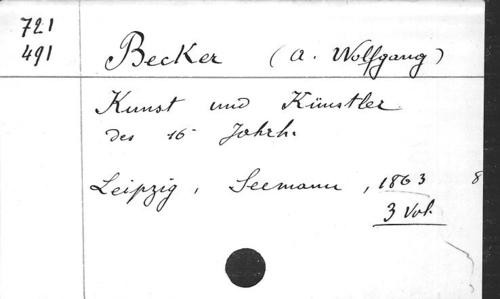 721
491
Becker (A. Wolfgang)
Kunst und Künstler
des 16 Jahrh.
Leipzig, Seemann, 1863 8
3 Vol.